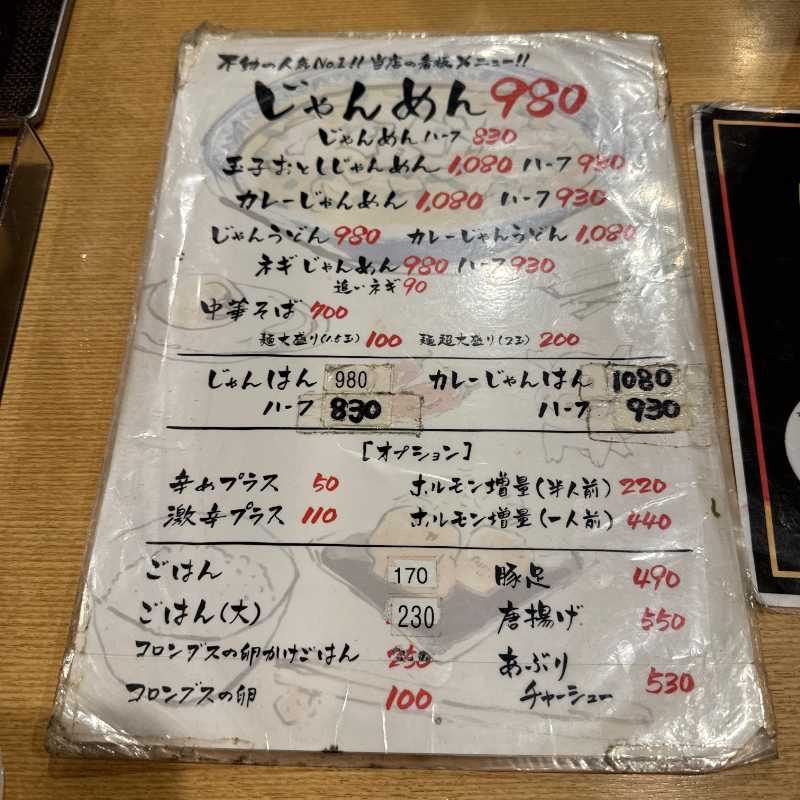 不動の人気No.1!! 当店の看板メニュー!!
じゃんめん 980
じゃんめんハーフ 830
玉子おとしじゃんめん 1,080 ハーフ 930
カレーじゃんめん 1,080 ハーフ 930
じゃんうどん 980 カレーじゃんうどん 1,080
ネギじゃんめん 980 ハーフ 930
追いネギ 90
中華そば 700
麺大盛り(1.5玉) 100 麺超大盛り(2玉) 200
じゃんはん 980 カレーじゃんはん 1080
ハーフ 830 ハーフ 930
[オプション]
辛めプラス 50 ホルモン増量(半人前) 220
激辛プラス 110 ホルモン増量(一人前) 440
ごはん 170 豚足 490
ごはん(大) 230 唐揚げ 550
コロンブスの卵かけごはん 250 あぶり
チャーシュー 530
コロンブスの卵 100